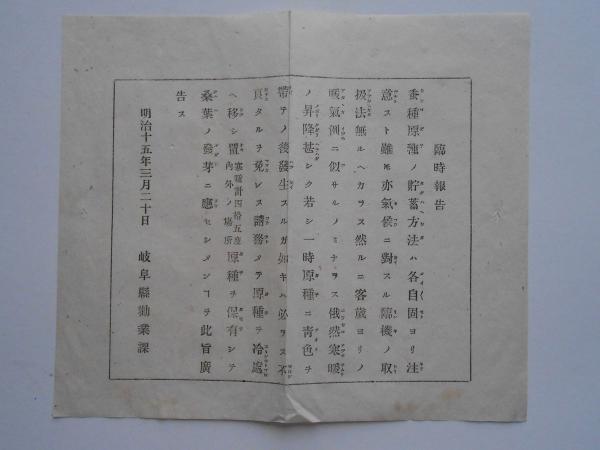 臨時報告
蚕種原種ノ貯蓄方法ハ各自固ヨリ注
意スト雖𪜈亦氣侯ニ對スル臨機ノ取
扱法無ルヘカラス然ルニ客歳ヨリノ
暖氣例ニ似サルノミナラス俄然寒暖
ノ昇降甚シク若シ一時原種ニ青色ヲ
帶テノ後發生スルガ如キハ必ラス不
良タルヲ免レス請務メテ原種ヲ冷處
ヘ移シ置寒暖計四拾五度内外ノ場所原種ヲ保有シテ
桑葉ノ發芽ニ應セシメンヿヲ此旨廣
告ス
明治十五年三月二十日 岐阜縣勸業課